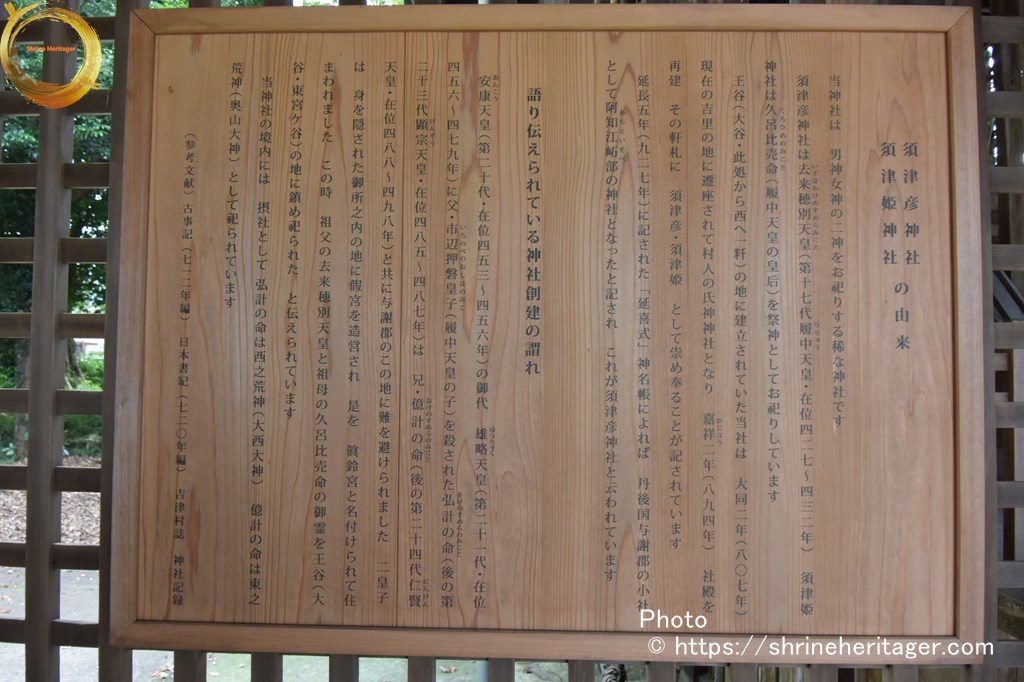 須津彦神社
須津姫神社 の由来
当神社は 男神女神の二神をお祀りする稀な神社です
須津彦神社は去来穂別天皇(第十七代履中天皇・在位四二七～四三二年) 須津姫
いざほわけのすめらみこと
りちゅう
神社は久呂比売命(履中天皇の皇后)を祭神としてお祀りしています
くろひめのみこと
王谷(大谷・此処から西へ一粁)の地に建立されていた当社は 大同二年(八〇七年)
現在の吉里の地に遷座されて村人の氏神神社となり 嘉祥二年(八九四年) 社殿を
かじょう
再建 その軒札に 須津彦・須津姫 として崇め奉ることが記されています
延長五年(九二七年)に記された「延喜式」神名帳によれば 丹後国与謝郡の小社
として阿知江𡸴部の神社となったと記され これが須津彦神社と云われています
語り伝えられている神社創建の謂れ
安康天皇(第二十代・在位四五三～四五六年)の御代 雄略天皇(第二十一代・在位
あんこう
ゆうりゃく
四五六～四七九年)に父・市辺押磐皇子(履中天皇の子)を殺された弘計の命(後の第
いちのべのおしはのみこ
二十三代顕宗天皇・在位四八五～四八七年)は 兄 億計の命(後の第二十四代仁賢
けんぞう
にんけん
天皇・在位四八八～四九八年)と共に与謝郡のこの地に難を避けられました 二皇子
は 身を隠された御所之内の地に假宮を造営され 是を 眞鈴宮と名付けられて住
まわれました この時 祖父の去来穂別天皇と祖母の久呂比売命の御霊を王谷(大
谷・東宮ケ谷)の地に鎮め祀られた と伝えられています
当神社の境内には 摂社として弘計の命は西之荒神(大西大神) 億計の命は東之
荒神(奥山大神) として祀られています
(参考文献) 古事記(七一二年編) 日本書記(七二〇年編) 吉津村誌 神社記録
Shrine Heritager
Photo
© https://shrineheritager.com